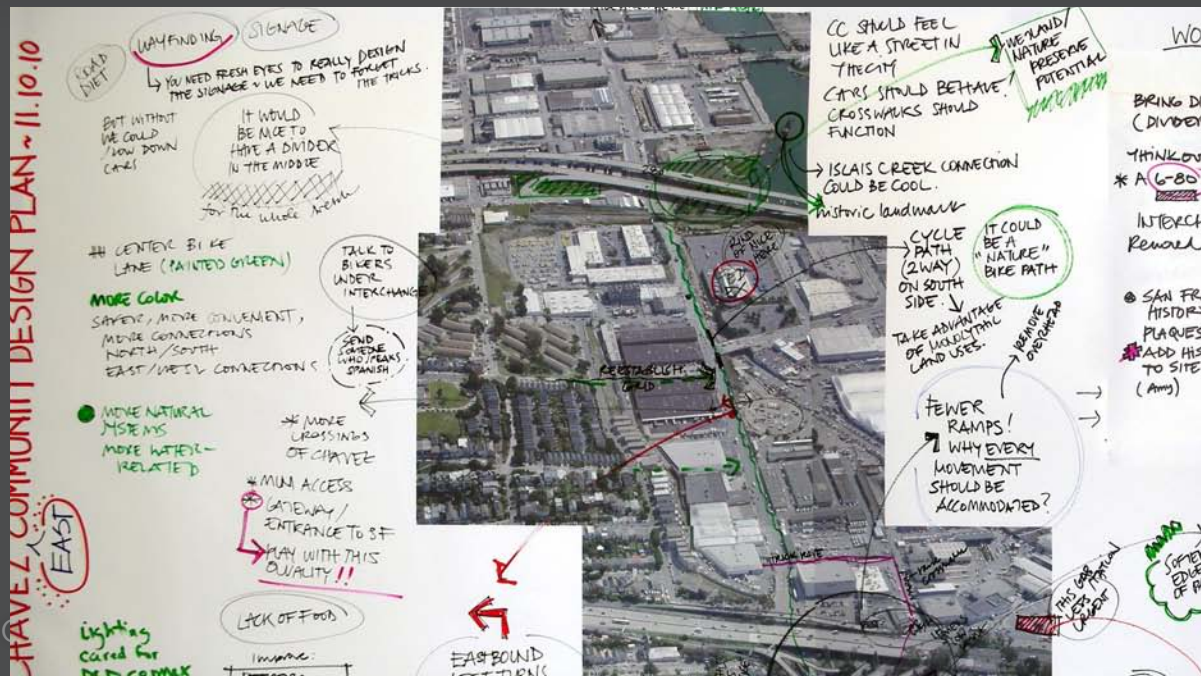 CHAVEZ COMMUNITY DESIGN PLAN ~ 11.10.10
EAST
ROAD
DIET
WAYFINDING
SIGNAGE
YOU NEED FRESH EYES TO REALLY DESIGN
THE SIGNAGE ~ WE NEED TO FORGET
THE TRICKS.
BUT WITHOUT
WE COULD
DOWN
CARS
IT WOULD
BE NICE TO
HAVE A DIVIDER
IN THE MIDDLE
for the whole
CENTER BIKE
LANE (PAINTED GREEN)
MORE COLOR
SAFER, MORE CONVENIENT,
MORE CONNECTIONS
NORTH/SOUTH
EAST/WEST CONNECTIONS
TALK TO
BIKERS
UNDER
INTERCHANGE
SEND
SOMEONE
WHO SPEAKS
SPANISH
MORE NATURAL
SYSTEMS
MORE WATER-
RELATED
* MORE
CROSSINGS
OF CHAVEZ
* MUNI ACCESS
* GATEWAY/
ENTRANCE TO SF
PLAY WITH THIS
QUALITY!!
LACK OF FOOD
Improve:
Lighting
cared for
EASTBOUND
LEFT TURNS
REESTABLISH
GRID
TRUCK ROUTE
CC SHOULD FEEL
LIKE A STREET IN
THE CITY
CARS SHOULD BEHAVE.
CROSSWALKS SHOULD
FUNCTION
WETLAND/
NATURE
PRESERVE
POTENTIAL
ISLAIS CREEK CONNECTION
COULD BE COOL.
historic landmark
CYCLE
PATH
(2WAY)
ON SOUTH
SIDE.
TAKE ADVANTAGE
OF
LAND USES.
IT COULD
BE A
"NATURE"
BIKE PATH
REMOVE
OVERHEAD
FEWER
RAMPS!
WHY EVERY
MOVEMENT
SHOULD BE
ACCOMMODATED?
THIS
LESS
URGENT
WO
BRING D
(DIVIDE
THINK OU
* A 6-80
INTERCH
Remova
SAN FR
HISTOR
PLAQUES
* ADD HIS
TO SITE
(Amy)
SOFTE
EDGE
OF F